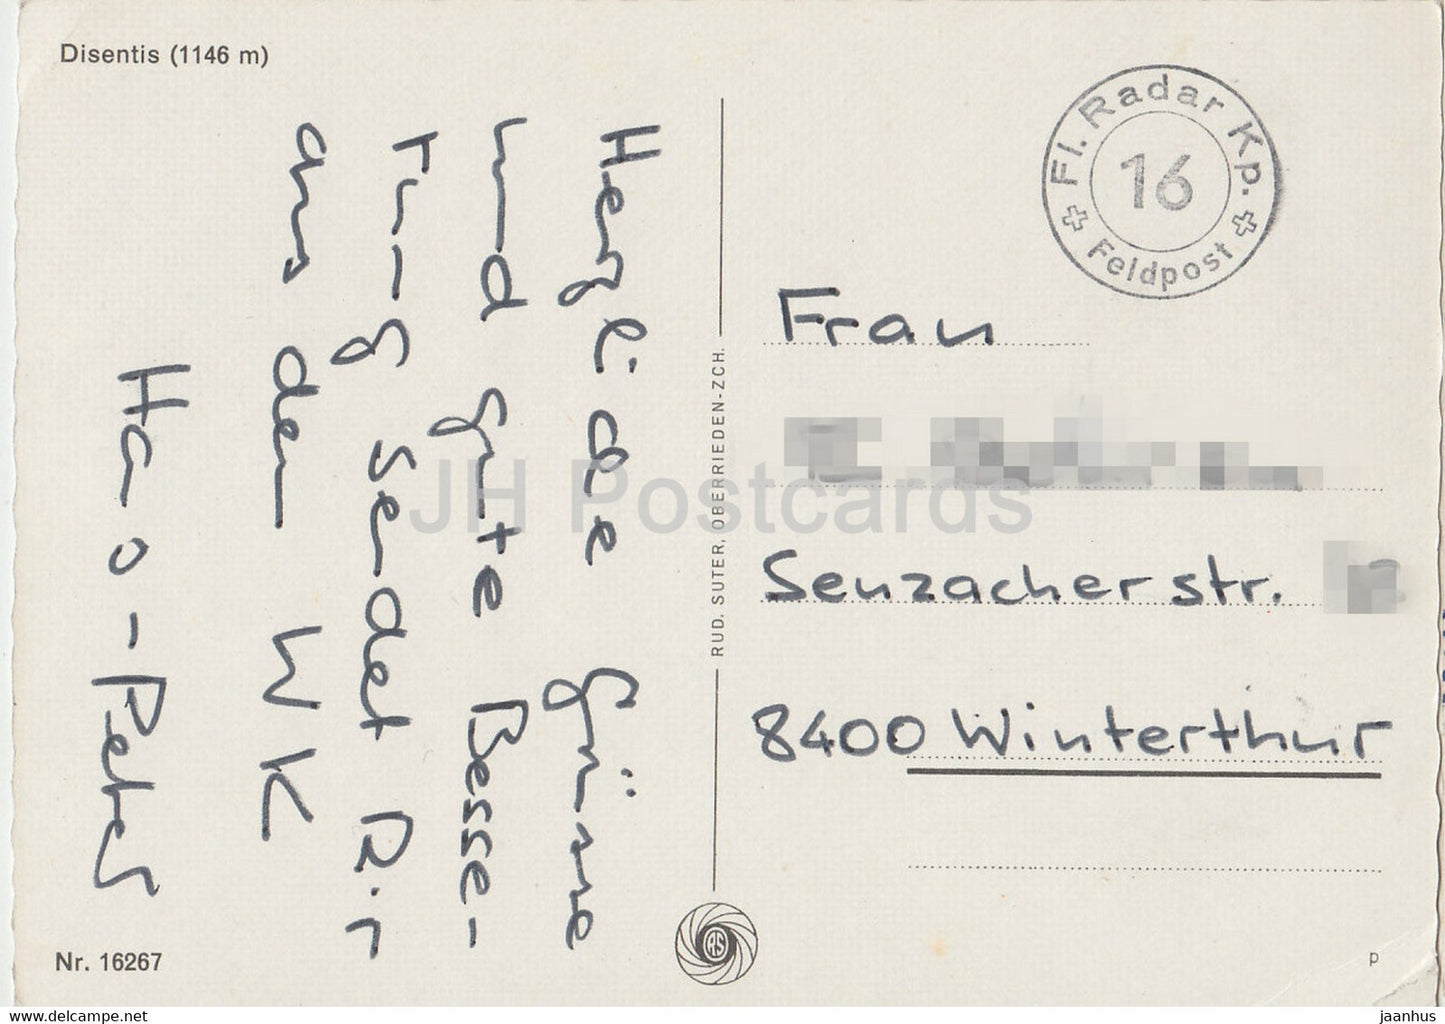 Disentis (1146 m)
Herzliche Grüsse
und gute Besse-
rung sendet Dir
aus dem WK
Hans-Peter
Fl. Radar Kp.
16
Feldpost
Frau
Seuzacherstr.
8400 Winterthur
RUD. SUTER, OBERRIEDEN-ZCH.
RS
Nr. 16267
p
JH Postcards
www.delcampe.net
jaanhus